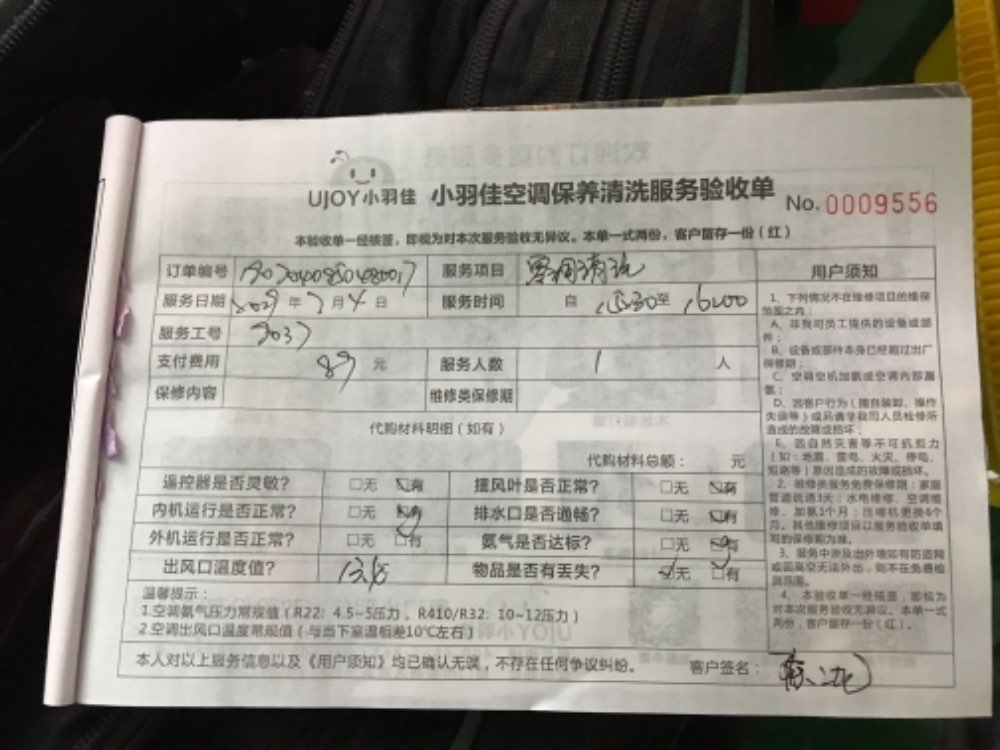 UJOY小羽佳 小羽佳空调保养清洗服务验收单 No.0009556
本验收单一经核签，即视为对本次服务验收无异议。本单一式两份，客户留存一份（红）
订单编号 服务项目 空调清洗
服务日期 年7月4日 服务时间 自 至 16:00
服务工号
支付费用 89 元 服务人数 1 人
保修内容 维修类保修期
代购材料明细（如有）
代购材料总额： 元
遥控器是否灵敏？ □无 □有 摆风叶是否正常？ □无 □有
内机运行是否正常？ □无 □有 排水口是否通畅？ □无 □有
外机运行是否正常？ □无 □有 氨气是否达标？ □无 □有
出风口温度值？ 物品是否有丢失？ □无 □有
温馨提示：
1.空调氨气压力常规值（R22：4.5~5压力，R410/R32：10~12压力）
2.空调出风口温度常规值（与当下室温相差10℃左右）
本人对以上服务信息以及《用户须知》均已确认无误，不存在任何争议纠纷。 客户签名：
用户须知
1、下列情况不在维修项目的维保
范围之内：
A、非我司员工提供的设备或部
件；
B、设备或部件本身已经超过出厂
保修期；
C、空调空机加氨或空调内部漏
氨；
D、因客户行为（擅自装卸、操作
失误等）或另请非我司人员检修所
造成的故障或损坏；
E、因自然灾害等不可抗拒力
（如：地震、雷电、火灾、停电、
短路等）原因造成的故障或损坏。
2、维修类服务免费保修期：家庭
管道疏通3天；水电维修、空调维
修、加氨1个月；压缩机更换6个
月。其他维修项目以服务验收单填
写的保修期为准。
3、服务中涉及出外墙如有防盗网
或因高空无法外出，则不在免费检
测范围。
4、本验收单一经核签，即视为
对本次服务验收无异议。本单一式
两份，客户留存一份（红）。